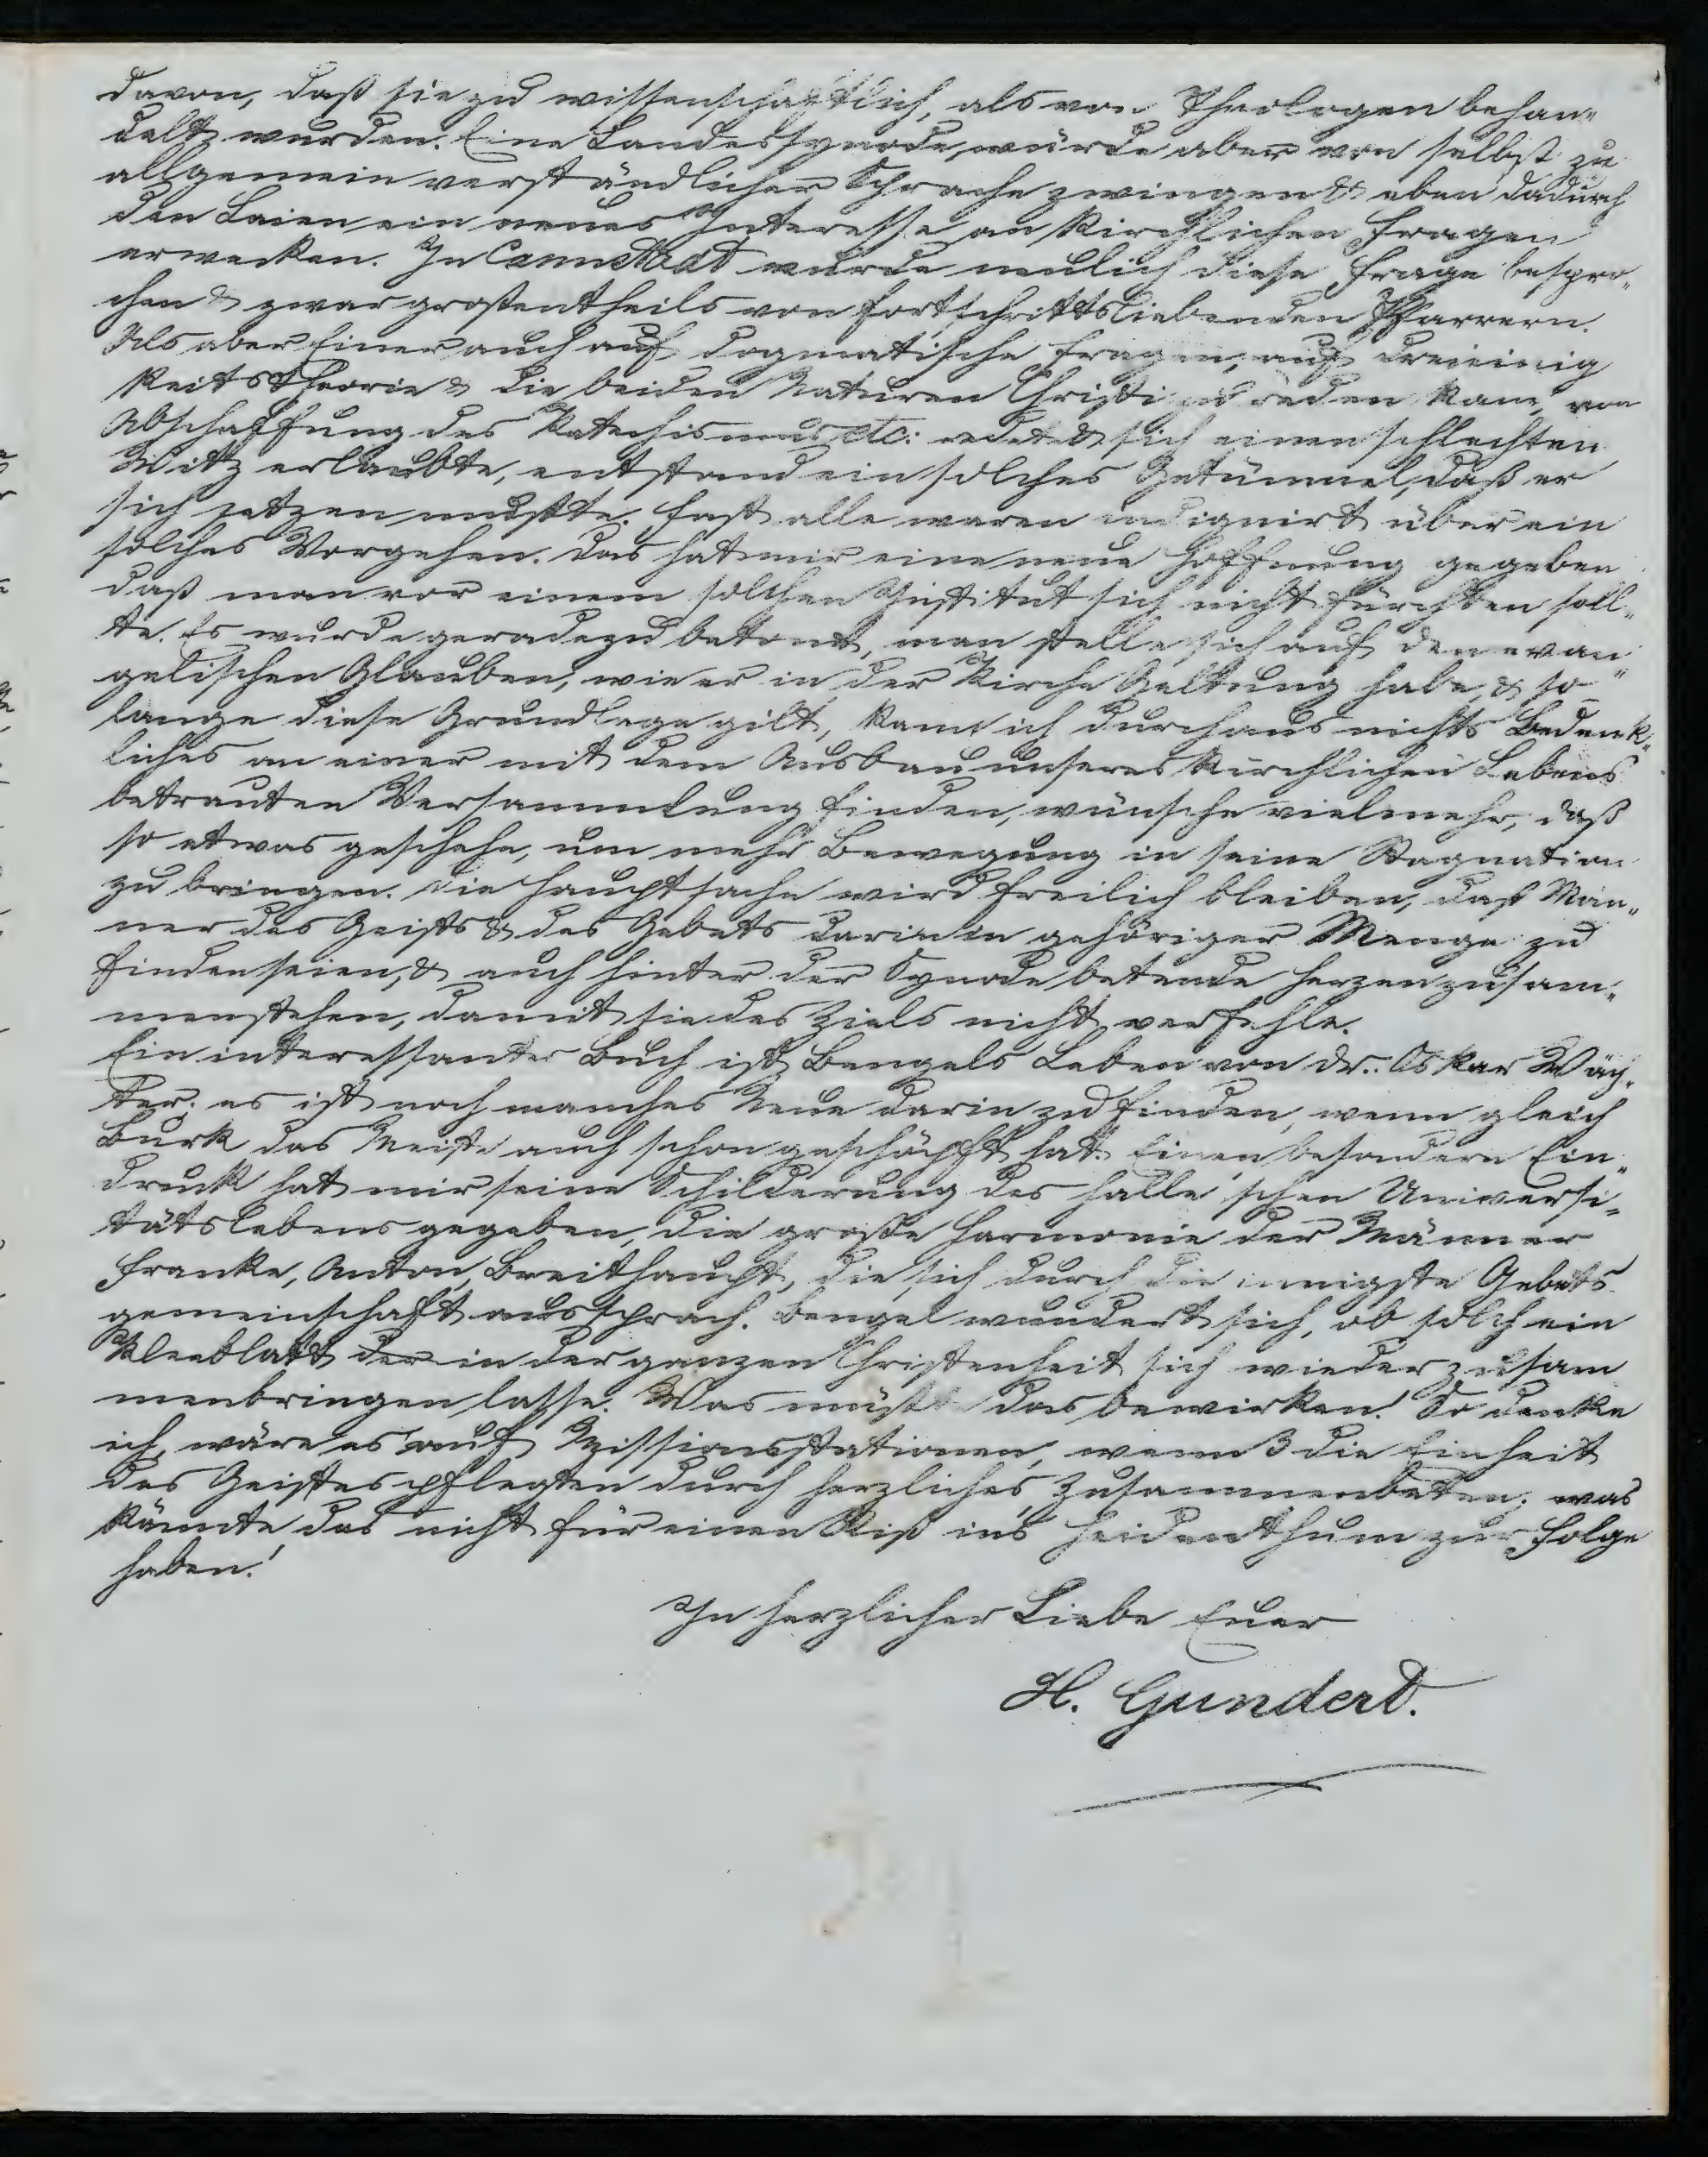 davon, daß sie zu wissenschaftlich, als von Theologen behan„
delt wurden. Eine Landessynode würde aber von selbst zu
allgemein verständlicher Sprache zwingen & eben dadurch
den Laien ein neues Interesse an kirchlichen Fragen
erwecken. In Cannstadt wurde neulich diese Frage bespro„
chen & zwar großentheils von fortschrittsliebenden Pfarrern.
Als aber Einer auch auf dogmatische Fragen, auf Dreieinig
keitstheorie & die beiden Naturen Christi zu reden kam, von
Abschaffung des Katechismus etc: redete & sich einen schlechten
Witz erlaubte, entstand ein solches Getümmel, daß er
sich setzen mußte. Fast alle waren indignirt über ein
solches Vorgehen. Das hat mir eine neue Hoffnung gegeben
daß man vor einem solchen Institut sich nicht fürchten soll„
te. Es wurde geradezu betont, man stelle sich auf den evan„
gelischen Glauben, wie er in der Kirche Geltung habe, & so„
lange diese Grundlage gilt, kann ich durchaus nichts Bedenk„
liches an einer mit dem Ausbau unseres kirchlichen Lebens
betrauten Versammlung finden, wünsche vielmehr, daß
so etwas geschehe, um mehr Bewegung in seine Stagnation
zu bringen. Die Hauptsache wird freilich bleiben, daß Män„
ner des Geists & des Gebets darin in gehöriger Menge zu
finden seien, & auch hinter der Synode betende Herzen zusam„
menstehen, damit sie des Ziels nicht verfehle.
Ein interessantes Buch ist Bengels Leben von Dr. Oskar Wäch„
ter. es ist noch manches Neue darin zu finden, wenn gleich
Burk das Meiste auch schon geschöpft hat. Einen besondern Ein„
druck hat mir seine Schilderung des Halle'schen Universi„
tätslebens gegeben, die große Harmonie der Männer
Franke, Anton, Breithaupt, die sich durch die innigste Gebets
gemeinschaft aussprach. Bengel wundert sich, ob solch ein
Kleeblatt der in der ganzen Christenheit sich wieder zusam
menbringen lasse. Was müßte das bewirken! So denke
ich, wäre es auf Missionsstationen, wenn 3 die Einheit
des Geistes pflegten durch herzliches Zusammenbeten; was
könnte das nicht für einen Riß ins Heidenthum zur Folge
haben!
In herzlicher Liebe Euer
H. Gundert.